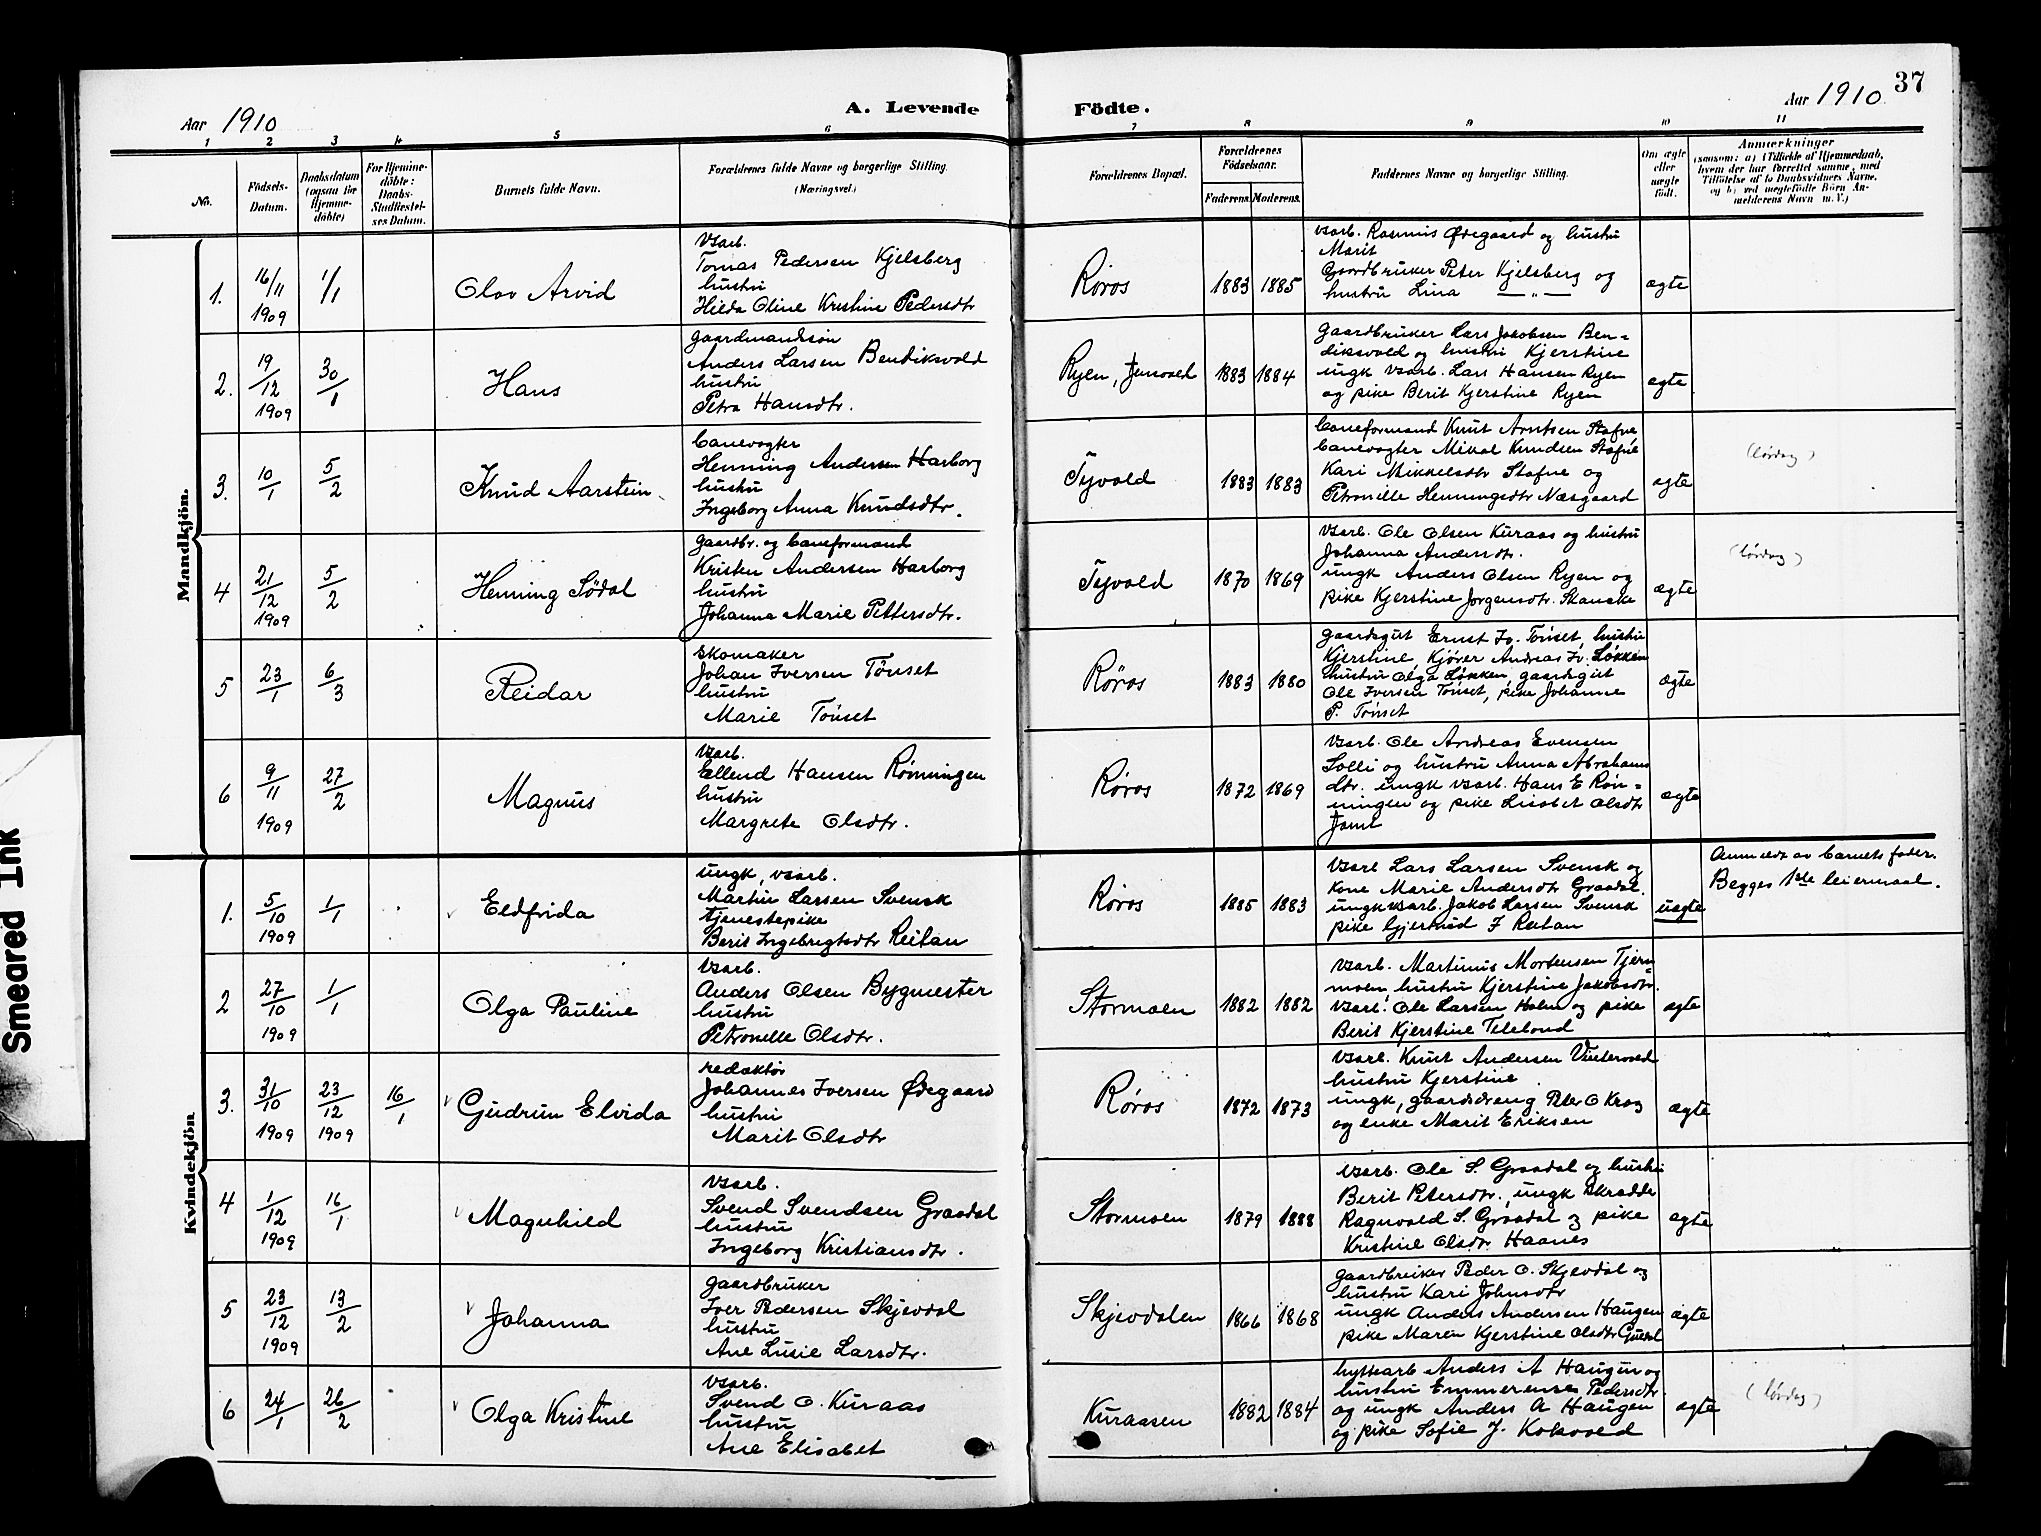 37
Aar 1910
A. Levende
Födte.
Aar 1910
1 2 3 4 5 6 7 8 9 10 11
No.
Födsels-
Datum.
Daabsdatum
(ogsaa for
Hjemme-
döbte)
For Hjemme-
döbte:
Daabs-
Stadfæstel-
ses Datum.
Barnets fulde Navn.
Forældrenes fulde Navne og borgerlige Stilling.
(Næringsvei.)
Forældrenes Bopæl.
Forældrenes
Födselsaar.
Faderens. Moderens.
Faddernes Navne og borgerlige Stilling.
Om ægte
eller
uægte
født.
Anmærkninger
(saasom: a) i Tilfælde af Hjemmedaab,
hvem der har forrettet samme, med
Tilföielse af to Daabsvidners Navne,
og b) ved uægtefödte Börn An-
melderens Navn m. V.)
Mandkjön.
1.
16/11
1909
1/1
Olav Arvid
Vsarb.
Tomas Pedersen Kjelsberg
hustru
Hilda Oline Kristine Pedersdtr
Røros
1883 1885
vsarb. Rasmus Ødegaard og hustru
Marit
Gaardbruker Peter Kjelsberg og
hustru Lina —„—
ægte
2.
19/12
1909
30/1
Hans
gaardmandsøn
Anders Larsen Bendiksvold
hustru
Petra Hansdtr.
Ryen, Jensvold
1883 1884
Gaardbruker Lars Jakobsen Ben-
diksvold og hustru Kjerstine
ungk vsarb. Lars Hansen Ryen
og pike Berit Kjerstine Ryen
ægte
3.
10/1
5/2
Knud Aarstein
banevogter
Henning Andersen Harborg
hustru
Ingeborg Anna Knudsdtr.
Tyvold
1883 1883
baneformand Knut Arntsen Stafne
banevogter Mikal Knudsen Stafne
Kari Mikkelsdtr Stafne og
Petronille Henningsdtr Næsgaard
ægte
(lørdag)
4
21/12
1909
5/2
Henning Södal
gaardbr. og baneformand
Kristen Andersen Harborg
hustru
Johanna Marie Pettersdtr.
Tyvold
1870 1869
Vsarb. Ole Olsen Kuraas og hustru
Johanna Andersdtr.
ungk Anders Olsen Ryen og
pike Kjerstine Jørgensdtr. Skancke
ægte
(lørdag)
5
23/1
6/3
Reidar
skomaker
Johan Iversen Tönset
hustru
Marie Tönset
Røros
1883 1880
gaardsgut Ernst Iv. Tönset, hustru
Kjerstine, Kjører Andreas Iv. Løkken
hustru Olga Løkken, gaardsgut
Ole Iversen Tönset, pike Johanne
P. Tönset
ægte
6
9/11
1909
27/2
Magnus
Vsarb.
Ellend Hansen Rønningen
hustru
Margrete Olsdtr.
Røros
1872 1869
Vsarb. Ole Andreas Evensen
Solli og hustru Anna Abrahams
dtr. ungk vsarb. Hans E Røn-
ningen og pike Lisabet Olsdtr
Jamt
ægte
Kvindekjön
1.
5/10
1909
1/1
Eldfrida
ungk, vsarb.
Martin Larsen Svensk
tjenestepike
Berit Ingebregtsdtr Reitan
Røros
1885 1883
Vsarb Lars Larsen Svensk og
kone Marie Andersdtr Graadal.
ungk vsarb. Jakob Larsen Svensk
pike Gjertrud I Reitan
uægte
Anmeldt av barnets fader.
Begges 1ste leiermaal.
2
27/10
1909
1/1
Olga Pauline
Vsarb.
Anders Olsen Bygmester
hustru
Petronelle Olsdtr.
Stormoen
1882 1882
Vsarb. Martinus Mortensen Tjern-
moen, hustru Kjerstine Jakobsdtr.
Vsarb. Ole Larsen Holm og pike
Berit Kjerstine
ægte
3.
31/10
1909
23/12
1909
16/1
Gudrun Elvida
redaktør
Johannes Iversen Ødegaard
hustru
Marit Olsdtr
Røros
1872 1873
Vsarb. Knut Andersen Vintervold
hustru Kjerstine
ungk, gaardsdreng Peter O Krog
og enke Marit Eriksen
ægte
4
1/12
1909
16/1
Magnhild
Vsarb.
Svend Svendsen Graadal
hustru
Ingeborg Kristiansdtr.
Stormoen
1879 1888
Vsarb. Ole S. Graadal og hustru
Berit Petersdtr. ungk skrædder
Ragnvald S. Graadal og pike
Kristine Olsdtr. Haanes
ægte
5
23/12
1909
13/2
Johanna
gaardbruker
Iver Pedersen Skjevdal
hustru
Ane Lusie Larsdtr.
Skjevdalen
1866 1868
gaardbruker Peder O. Skjevdal og
hustru Kari Johnsdtr
ungk Anders Andersen Haugen
pike Maren Kjerstine Olsdtr
ægte
6
24/1
26/2
Olga Kristine
Vsarb.
Svend O. Kuraas
hustru
Ane Elisabet
Kuraasen
1882 1884
hyttearb Anders A Haugen og
hustru Emmerense Pedersdtr.
og ungk Anders A Haugen
og pike Sofie J. Kokvold
ægte
(lørdag)
Smeared Ink